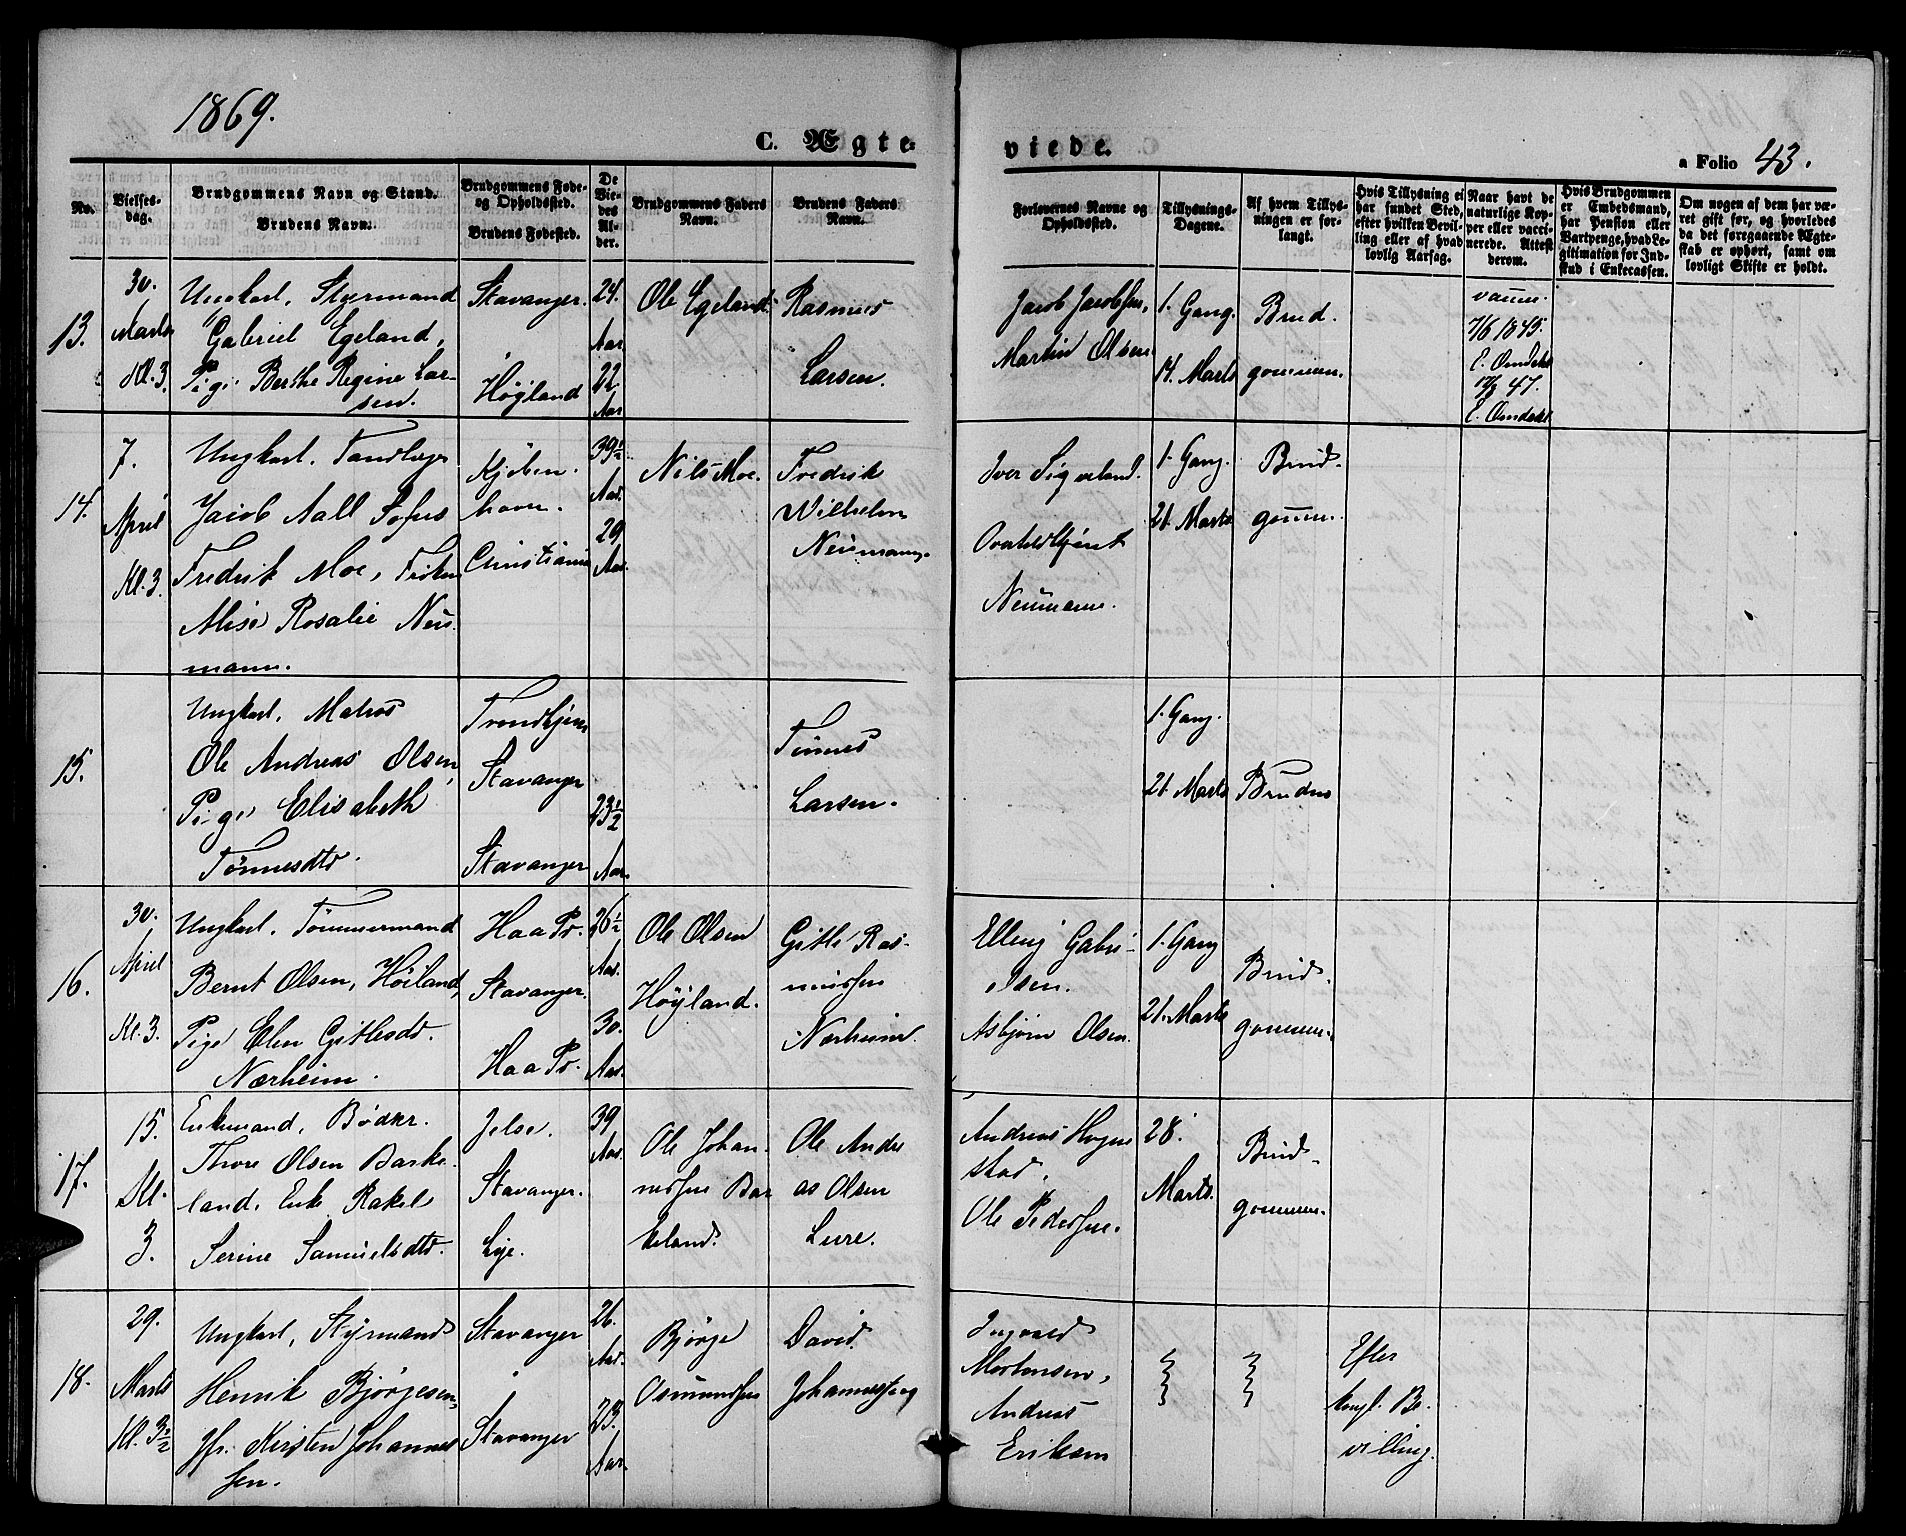 1869.
C. Ægte-
viede.
a Folio 43.
No.
Vielses-
dag.
Brudgommens Navn og Stand.
Brudens Navn.
Brudgommens Føde-
og Opholdssted.
Brudens Fødested.
De
Vie-
des
Al-
der.
Brudgommens Faders
Navn.
Brudens Faders
Navn.
Forlovernes Navne og
Opholdssted.
Tillysnings-
Dagene.
Af hvem Tillys-
ningen er for-
langt.
Hvis Tillysning ei
har fundet Sted,
efter hvilken Bevil-
ling eller af hvad
lovlig Aarsag.
Naar havt de
naturlige Kop-
per eller vacci-
nerede. Attest
derom.
Hvis Brudgommen
er Embedsmand,
har Pension eller
Vartpenge, hvad Le-
gitimation for Ind-
skud i Enkecassen.
Om nogen af dem har væ-
ret gift før, og hvorledes
da det foregaaende Ægte-
skab er ophørt, samt om
lovligt Skifte er holdt.
13.
30.
Marts
Kl. 3.
Ungkarl, Styrmand
Gabriel Egeland,
Pige Berthe Regine Lar-
sen.
Stavanger.
Høgland
24.
Aar
22
Aar
Ole Egeland.
Rasmus
Larsen.
Jacob Jacobsen,
Martin Olsen
1. Gang.
14. Marts
Brud-
gommen.
vaccin.
7/6 1845.
E. Omdahl
47.
E. Omdahl
14.
7.
April
Kl. 3.
Ungkarl, Tandlæge
Jacob Aall Sofus
Fredrik Moe, Frøken
Alise Rosalie Neu-
mann.
Kjøben-
havn.
Christiania
39½
Aar.
29
Aar.
Nils Moe.
Fredrik
Wilhelm
Neumann.
Iver Sigvarland.
Neumann.
1. Gang.
21. Marts
Brud-
gomm.
15.
Ungkarl, Matros
Ole Andreas Olsen,
Pige Elisabeth
Tønnesdtr.
Trondhjem
Stavanger
Stavanger
23½
Aar.
Tønnes
Larsen.
1. Gang.
21. Marts
Bruden
16.
30.
April
Kl. 3.
Ungkarl, Tømmermand
Bernt Olsen, Høiland,
Pige Elen Gitlesdt.
Nærheim.
Haa Pr.
Stavanger.
Haa Pr.
26½
Aar.
30.
Aar.
Ole Olsen
Høyland.
Gitle Ras-
mussen
Nærheim.
Elling Gabri-
elsen.
Asbjørn Olsen.
1. Gang
21. Marts
Brud-
gommen.
17.
15.
Kl.
3.
Enkemand, Bødker.
Thore Olsen Barke-
land, Enke Rakel
Serine Samuelsdtr.
Jelse.
Stavanger.
Lye.
39
Aar.
Ole Johan-
nessen Bar
keland.
Ole Andre
as Olsen
Lure.
Andreas Hogne
stad,
Ole Pedersen.
28.
Marts.
Brud-
gommen.
18.
29.
Marts
Kl. 3½
Ungkarl, Styrmand
Henrik Bjørgesen,
Jfr. Kirsten Johannes
sen.
Stavanger
Stavanger
26.
Aar.
23.
Aar.
Bjørge
Osmundsen
David
Johannessen
Ingvald
Mortensen,
Andreas
Eriksen
Efter
kongl. Be-
villing.